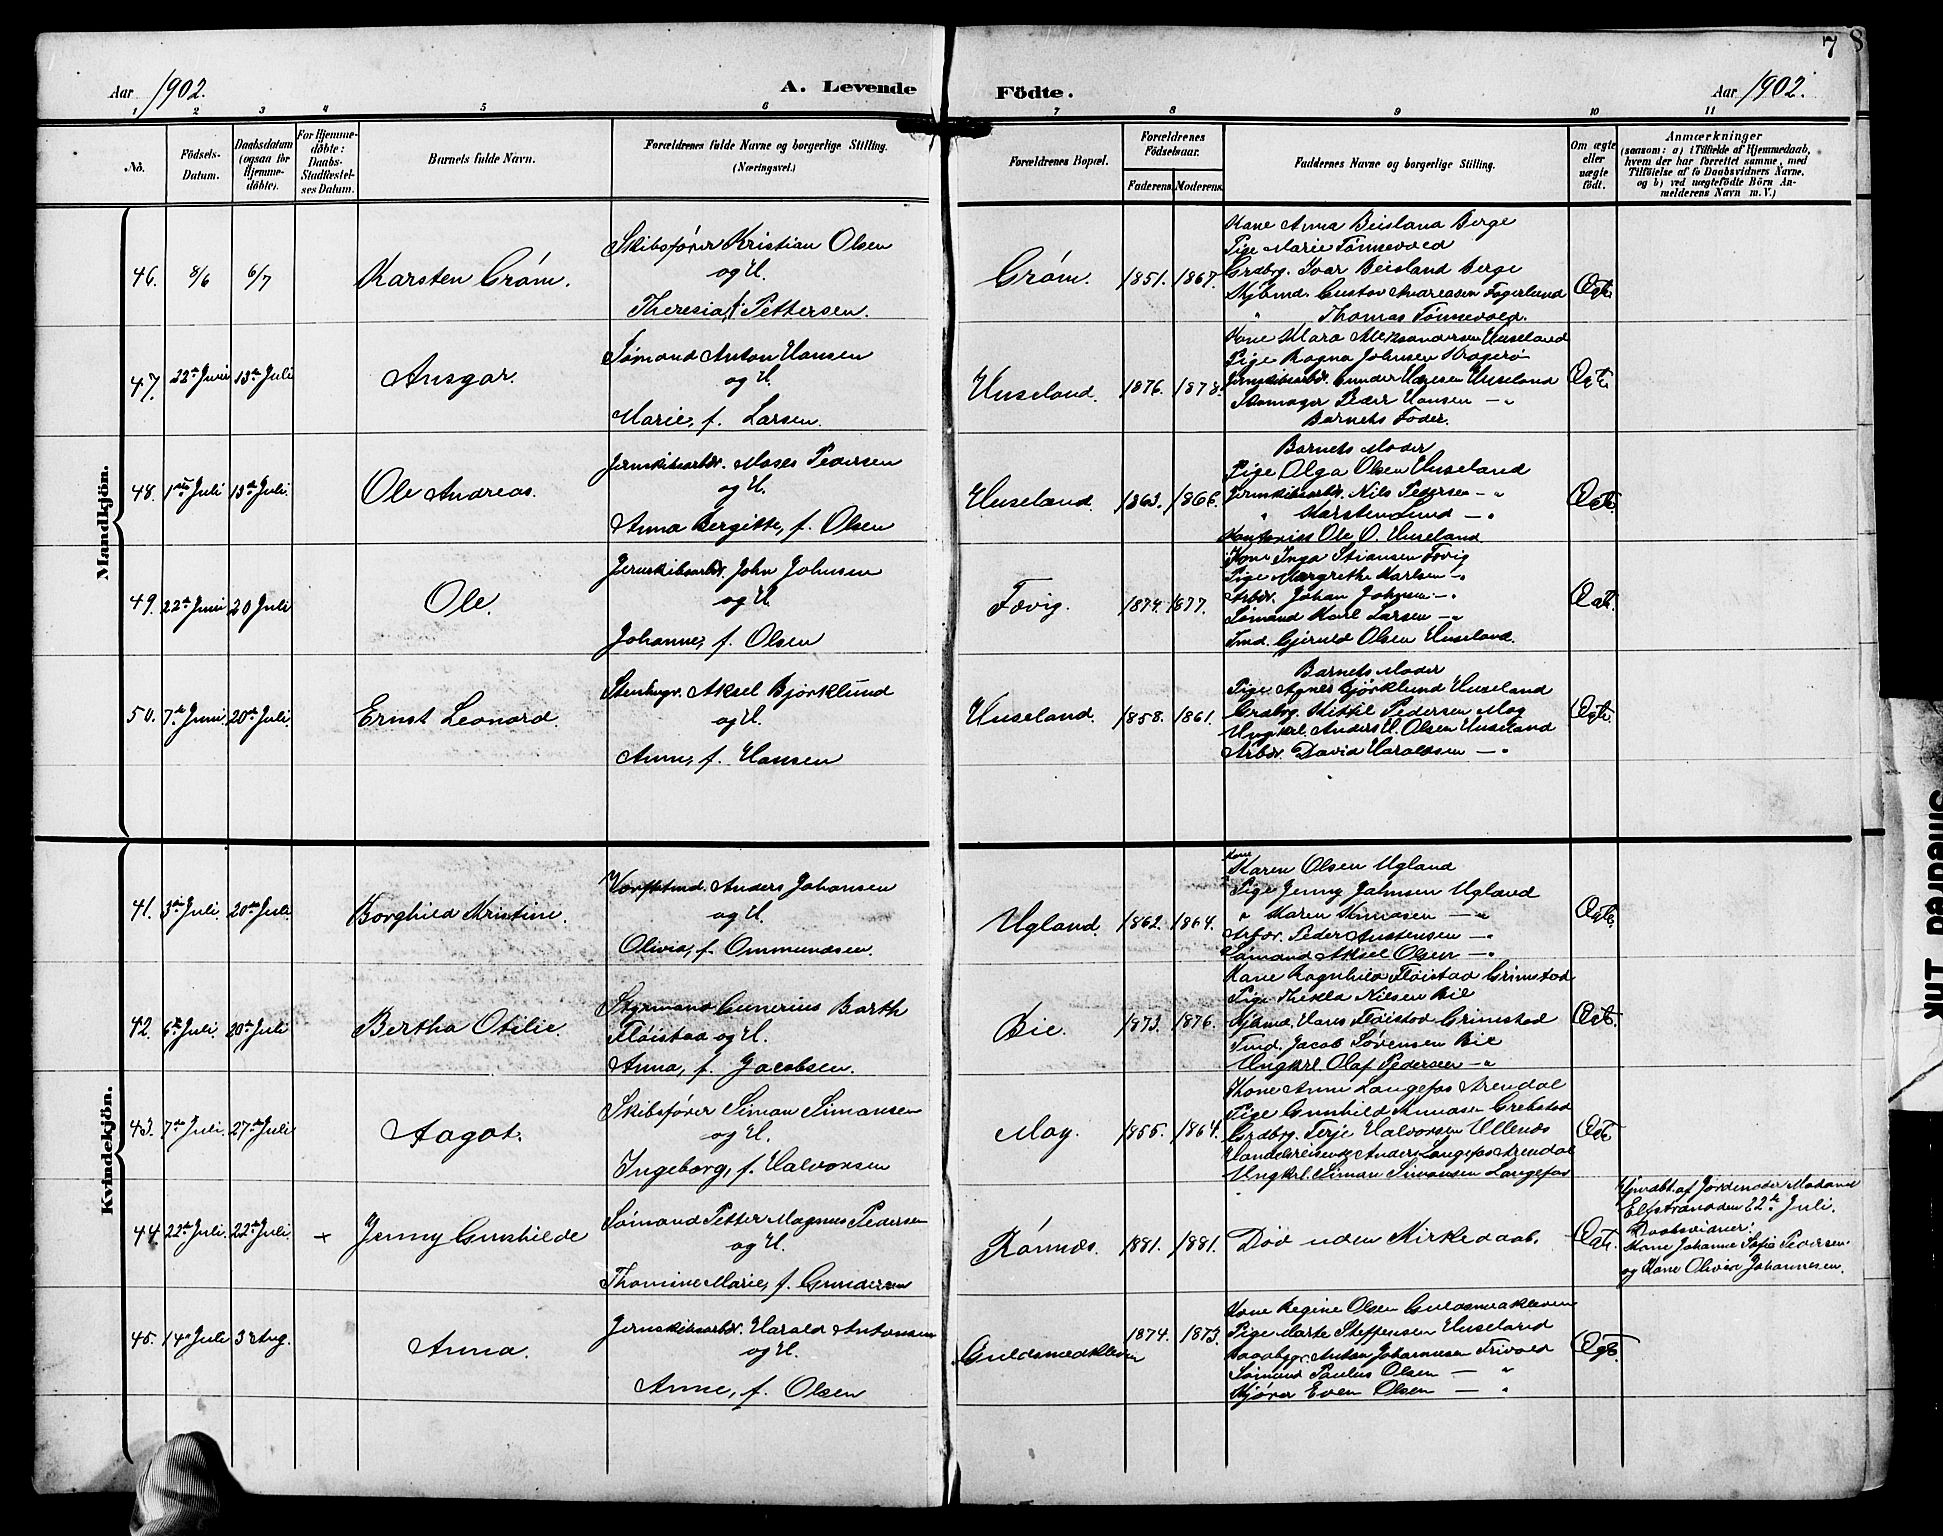 7 8
Aar 1902.
A. Levende Födte.
Aar 1902.
1 2 3 4 5 6 7 8 9 10 11
No.
Födsels-
Datum.
Daabsdatum
(ogsaa for
Hjemme-
döbte).
For Hjemme-
döbte:
Daabs-
Stadfæstel-
ses Datum.
Barnets fulde Navn.
Forældrenes fulde Navne og borgerlige Stilling.
(Næringsvei.)
Forældrenes Bopæl.
Forældrenes
Födselsaar.
Faderens. Moderens.
Faddernes Navne og borgerlige Stilling.
Om ægte
eller
uægte
födt.
Anmærkninger
(saasom: a) i Tilfælde af Hjemmedaab,
hvem der har forrettet samme, med
Tilföielse af to Daabsvidners Navne,
og b) ved uægtefödte Börn An-
melderens Navn m. V.)
Mandkjön.
46. 8/6 6/7 Karsten Grøm.
Skibsfører Kristian Olsen
og H.
Theresia f. Pettersen.
Grøm. 1851. 1867.
Kone Anna Beisland Berge
Pige Marie Tønnevold
Grdbrg. Ivar Beisland Berge
Kjøbmd. Gustav Andreasen Fagerlund
" Thomas Tønnevold.
Ægte
47. 22de Juni 13de Juli Ansgar.
Sømand Anton Hansen
og H.
Marie, f. Larsen.
Huseland. 1876. 1878.
Kone Mara Aleksandersen Huseland
Pige Ragna Johnsen Kragerø
Jernskibsarbdr. Gunder Hansen Huseland
Skomager Peder Hansen — "
Barnets Fader.
Ægte
48. 1ste Juli 13de Juli. Ole Andreas.
Jernskibsarbdr. Moses Pedersen
og H.
Anna Bergitte, f. Olsen
Huseland. 1863. 1866.
Barnets Moder
Pige Olga Olsen Huseland
Jernskibsarbdr. Nils Pedersen — "
" Karsten Lund — "
Kontorist Ole O. Huseland.
Ægte
49. 22de Juni 20 Juli Ole.
Jernskibsarbdr. John Johnsen
og H.
Johanne, f. Olsen
Fævig. 1874. 1877.
Kone Inga Stiansen Fævig
Pige Margrethe Karlsen — "
Arbdr. Johan Johnsen — "
Sømand Karl Larsen — "
Tmd. Gjeruld Olsen Huseland.
Ægte
50. 7de Juni 20de Juli. Ernst Leonard.
Stenhugr. Aksel Bjorklund
og H.
Anne, f. Hansen
Huseland. 1858. 1861.
Barnets Moder
Pige Agnes Bjørklund Huseland
Grdbrg. Kittil Pedersen Moy
Ungkrl. Anders H. Olsen Huseland
Arbdr. David Haraldsen — "
Ægte
Kvindekjön.
41. 3die Juli. 20de Juli Borghild Kristine.
Værftstmd. Anders Johansen
og H.
Olivia, f. Ommundsen.
Ugland. 1862. 1864.
Kone
Karen Olsen Ugland
Pige Jenny Johnsen Ugland
" Karen Knudsen — "
Arbdr. Peder Austensen — "
Sømand Aksel Olsen — "
Ægte
42. 6te Juli. 20de Juli Bertha Otilie.
Styrmand Gunerius Barth
Fløistad og H.
Anna, f. Jacobsen.
Bie. 1873. 1876.
Kone Ragnhild Fløistad Grimstad
Pige Thekla Nielsen Bie
Kjøbmd. Hans Fløistad Grimstad
Tmd. Jacob Sørensen Bie
Ungkrl. Olaf Pedersen — "
Ægte.
43. 7de Juli. 27de Juli Aagot.
Skibsfører Simon Simonsen
og H.
Ingeborg, f. Halvorsen
Moy. 1855. 1864.
Kone Anne Langefos Arendal
Pige Gunhild Knudsen Grebstad
Grdbrg. Terje Halvorsen Ullenæs
Handelsreisende Anders Langefos Arendal
Ungkrl. Simon Simonsen Langefos
Ægte
44. 22de Juli. 22de Juli. + Jenny Gunhilde
Sømand Petter Magnus Pedersen
og H.
Thomine Marie, f. Gundersen
Rønnæs. 1881. 1881.
Død uden Kirkedaab.
Ægte.
Hjmdbt. af Jordemoder Madame
Elfstrand den 22de Juli.
Daabsvidner:
Kone Johanne Sofie Pedersen
og Kone Olivia Johannesen.
45. 14de Juli 3 Aug. Anna.
Jernskibsarbdr. Harald Antonsen
og H.
Anne, f. Olsen
Guldsmedkleven 1874. 1873.
Kone Regine Olsen Guldsmedkleven
Pige Marte Steffensen Huseland
Baadbygr. Anton Johannesen Frivold
Sømand Paulus Olsen — "
Kjører Even Olsen — "
Ægte.